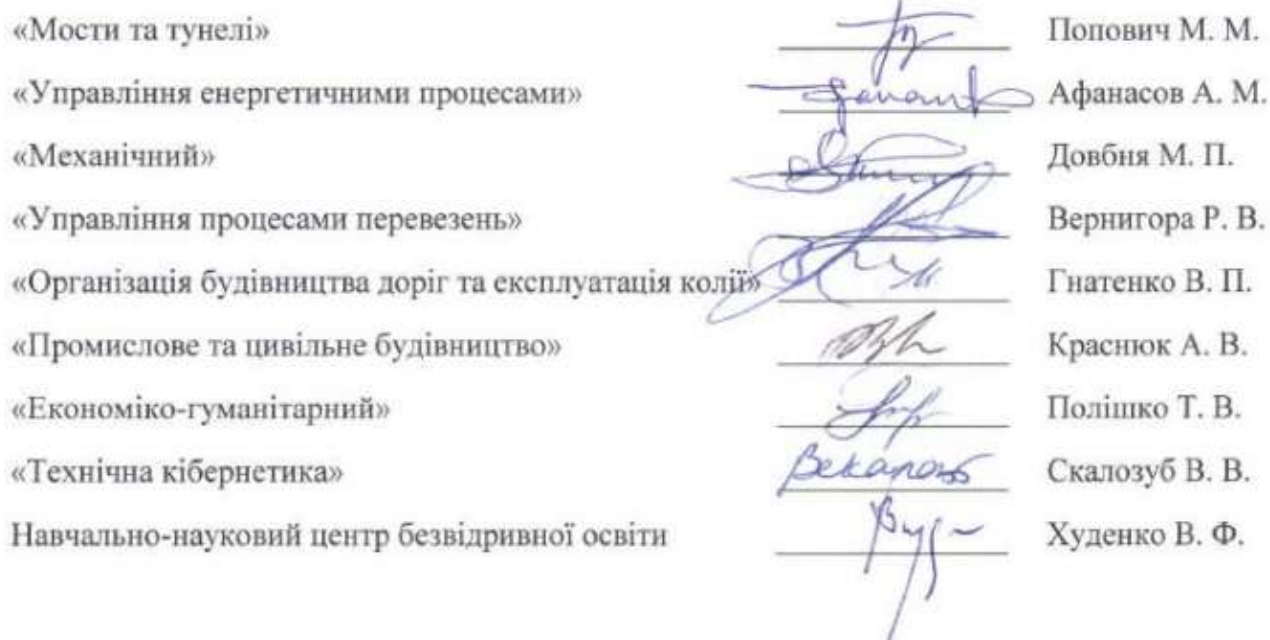 «Мости та тунелі» Попович М. М.
«Управління енергетичними процесами» Афанасов А. М.
«Механічний» Довбня М. П.
«Управління процесами перевезень» Вернигора Р. В.
«Організація будівництва доріг та експлуатація колії» Гнатенко В. П.
«Промислове та цивільне будівництво» Краснюк А. В.
«Економіко-гуманітарний» Полішко Т. В.
«Технічна кібернетика» Скалозуб В. В.
Навчально-науковий центр безвідривної освіти Худенко В. Ф.